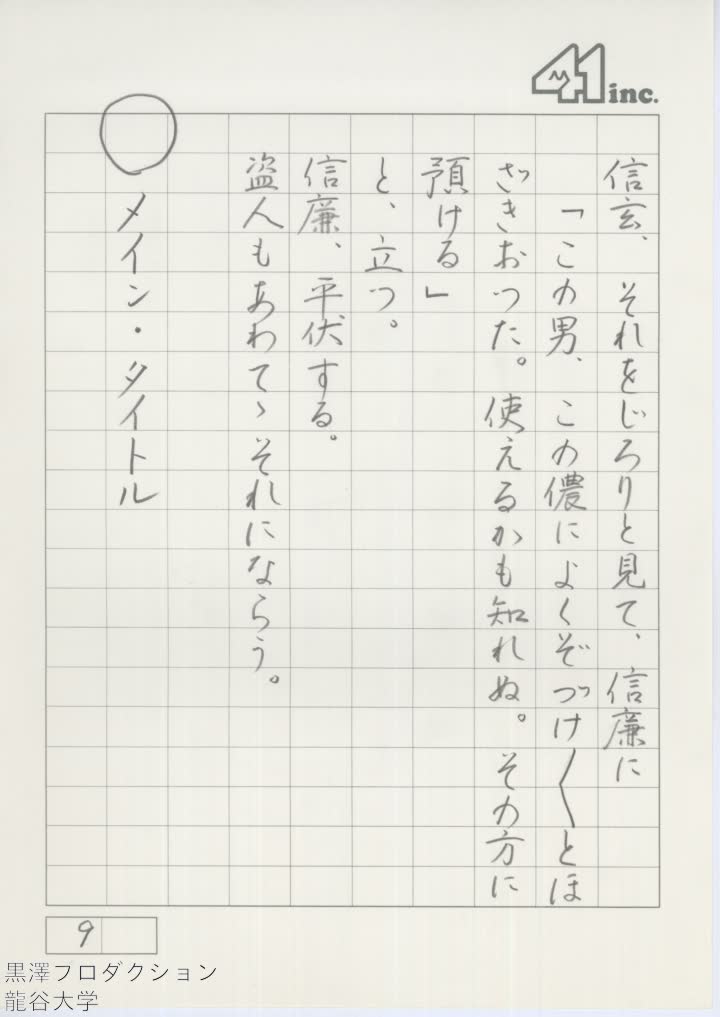 41 inc.
信玄、それをじろりと見て、信廉に
「この男、この儂によくぞづけ〱とほ
ざきおつた。使えるかも知れぬ。その方に
預ける」
と、立つ。
信廉、平伏する。
盗人もあわてゝそれにならう。
メイン・タイトル
9
黒澤プロダクション
龍谷大学